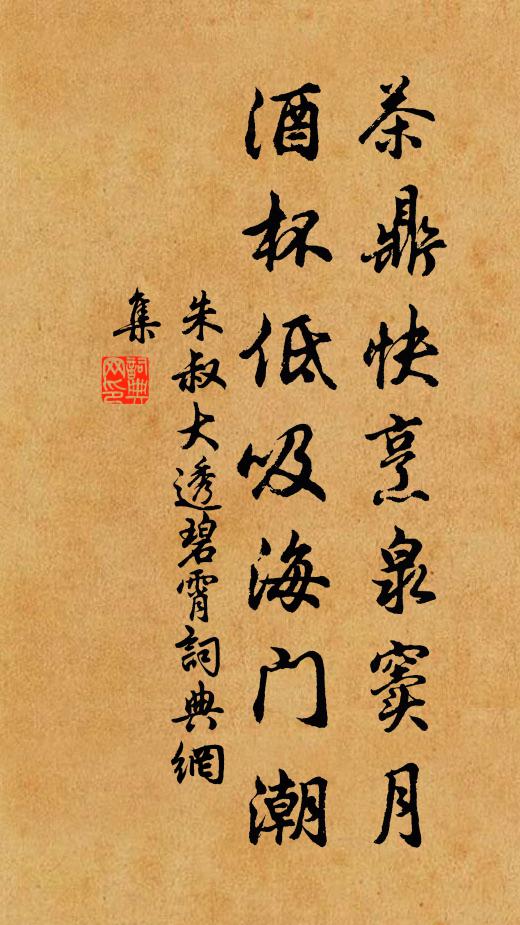 茶鼎快烹泉窦月
酒杯低吸海门潮
朱叔大透碧霄詞典網
集
詞典网印